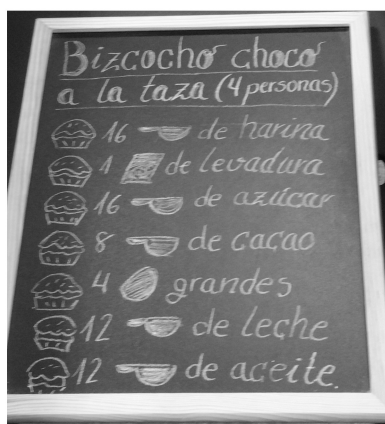 Bizcocho choco
a la taza (4 personas)
16 de harina
1 de levadura
16 de azúcar
8 de cacao
4 grandes
12 de leche
12 de aceite.